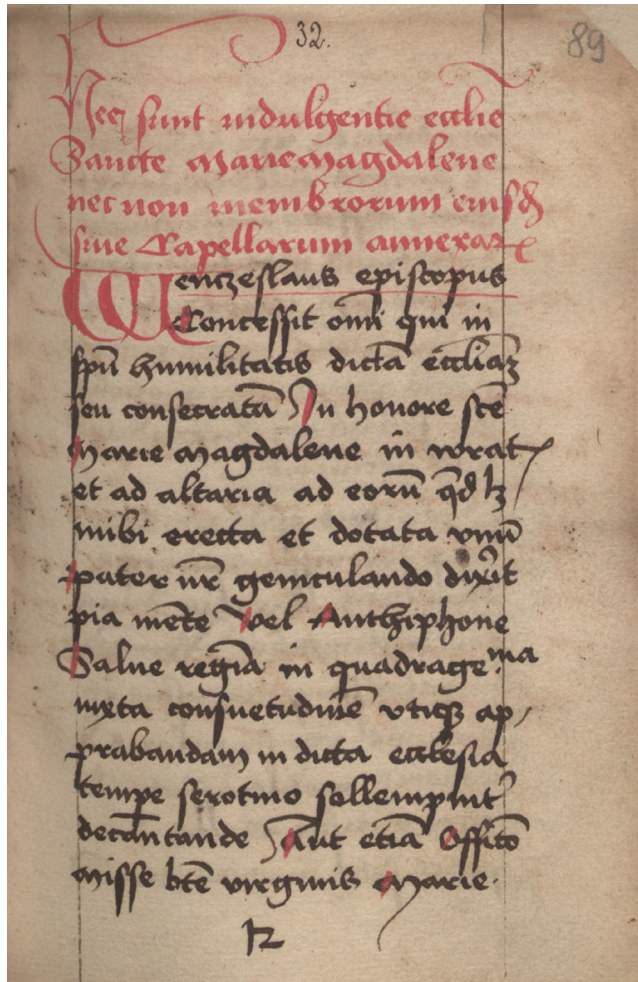 32.
89
Hec sunt indulgentie eccl̄ie
Sancte Marie Magdalene
nec non membrorum eiusdē
siue Capellarum annexar̄
Wenczeslaus episcopus
Concessit om̄i qui in
sp̄u humilitatis dictā eccl̄iaꝫ
seu consecratā In honore sc̄e
Marie Magdalene in wrat̄
et ad altaria ad eorū q̄dlꝫ
inibi erecta et dotata vnū
pater nr̄ geniculando dixerit
pia mēte Vel Anthiphone
Salue regīa in quadrage.ma
iuxta consuetudinē vtiqꝫ ap/
probandam in dicta ecclesia
tempe serotino sollempnit̾
decāntande Aut etiā Officō
Misse btē virginis Marie.